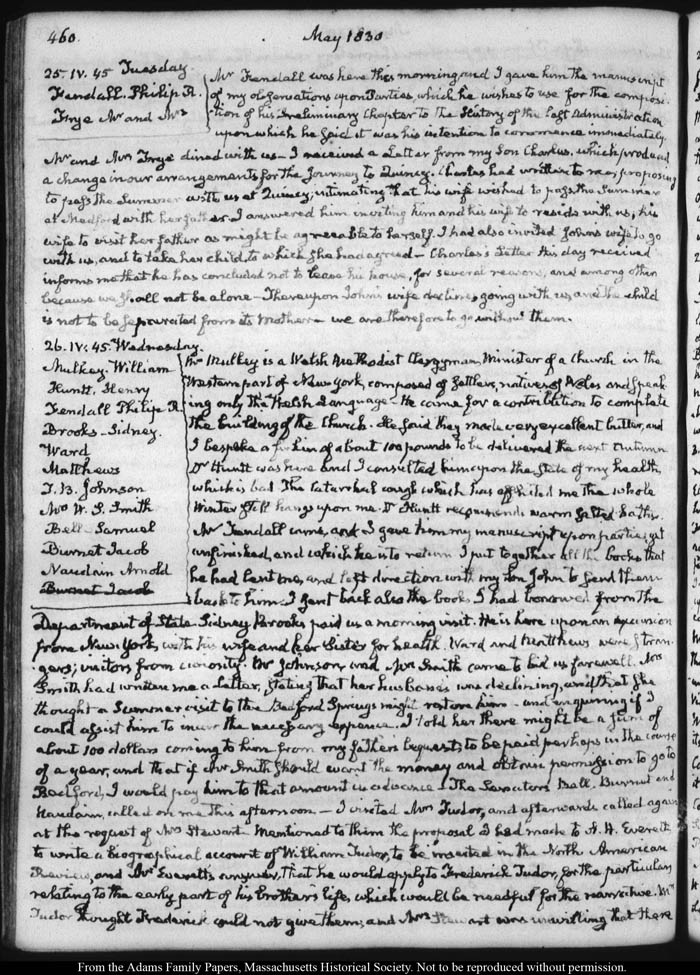 460.
May 1830
25. IV. 45 Tuesday.
Fendall. Philip R.
Frye Mr and Mrs
Mr Fendall was here this morning and I gave him the manuscript
of my observations upon Parties, which he wishes to use for the composi-
tion of his Preliminary Chapter to the History of the last Administration
upon which he said it was his intention to commence immediately.
Mr and Mrs Frye dined with us — I received a Letter from my Son Charles, which produced
a change in our arrangements for the Journey to Quincy. Charles had written to me, proposing
to pass the Summer with us at Quincy; intimating that his wife wished to pass the Summer
at Medford with her father. I answered him inviting him and his wife to reside with us; his
wife to visit her father as might be agreeable to herself. I had also invited John's wife to go
with us, and to take her child, to which she had agreed — Charles's Letter this day received
informs me that he has concluded not to lease his house, for several reasons, and among other
because we shall not be alone — Thereupon John's wife declines going with us and the child
is not to be separated from its Mother — we are therefore to go without them.
26. IV. 45. Wednesday.
Mulkey. William
Huntt. Henry
Fendall Philip R.
Brooks. Sidney.
Ward
Matthews
T. B. Johnson
Mrs W. S. Smith
Bell Samuel
Burnet Jacob
Naudain Arnold
Burnet Jacob
Mr Mulkey is a Welsh Methodist Clergyman, Minister of a Church in the
Western part of New York, composed of Settlers, natives of Wales and speak-
ing only the Welsh Language — He came for a contribution to complete
the building of the Church. He said they made very excellent butter, and
I bespoke a firkin of about 100 pounds to be delivered the next Autumn
Dr Huntt was here and I consulted him upon the state of my health,
which is bad The Catarrhal cough which has afflicted me the whole
Winter still hangs upon me. Dr Huntt recommends warm salted baths.
Mr Fendall came, and I gave him my manuscript upon parties, yet
unfinished, and which he is to return I put together all the books that
he had lent me, and left direction with my Son John to send them
back to him. I sent back also the books I had borrowed from the
Department of State. Sidney Brooks paid us a morning visit. He is here upon an excursion
from New York, with his wife and her Sister for health. Ward and Matthews were stran-
gers; visitors from curiosity. Mr Johnson, and Mrs Smith came to bid us farewell. Mrs
Smith had written me a Letter, stating that her husband was declining, and that she
thought a Summer visit to the Bedford Springs might restore him — and enquiring if I
could assist him to incur the necessary expence. I told her there might be a sum of
about 100 dollars coming to him from my father's bequest, to be paid perhaps in the course
of a year, and that if Mr Smith should want the money and obtain permission to go to
Bedford, I would pay him to that amount in advance — The Senators Bell, Burnet and
Naudain, called on me this afternoon — I visited Mrs Tudor, and afterwards called again
at the request of Mrs Stewart. Mentioned to them the proposal I had made to A. H. Everett
to write a biographical account of William Tudor, to be inserted in the North American
Review, and Mr Everett's answer, that he would apply to Frederick Tudor, for the particulars
relating to the early part of his brother's life, which would be needful for the narrative. Mrs
Tudor thought Frederick could not give them, and Mrs Stewart was unwilling that there
From the Adams Family Papers, Massachusetts Historical Society. Not to be reproduced without permission.